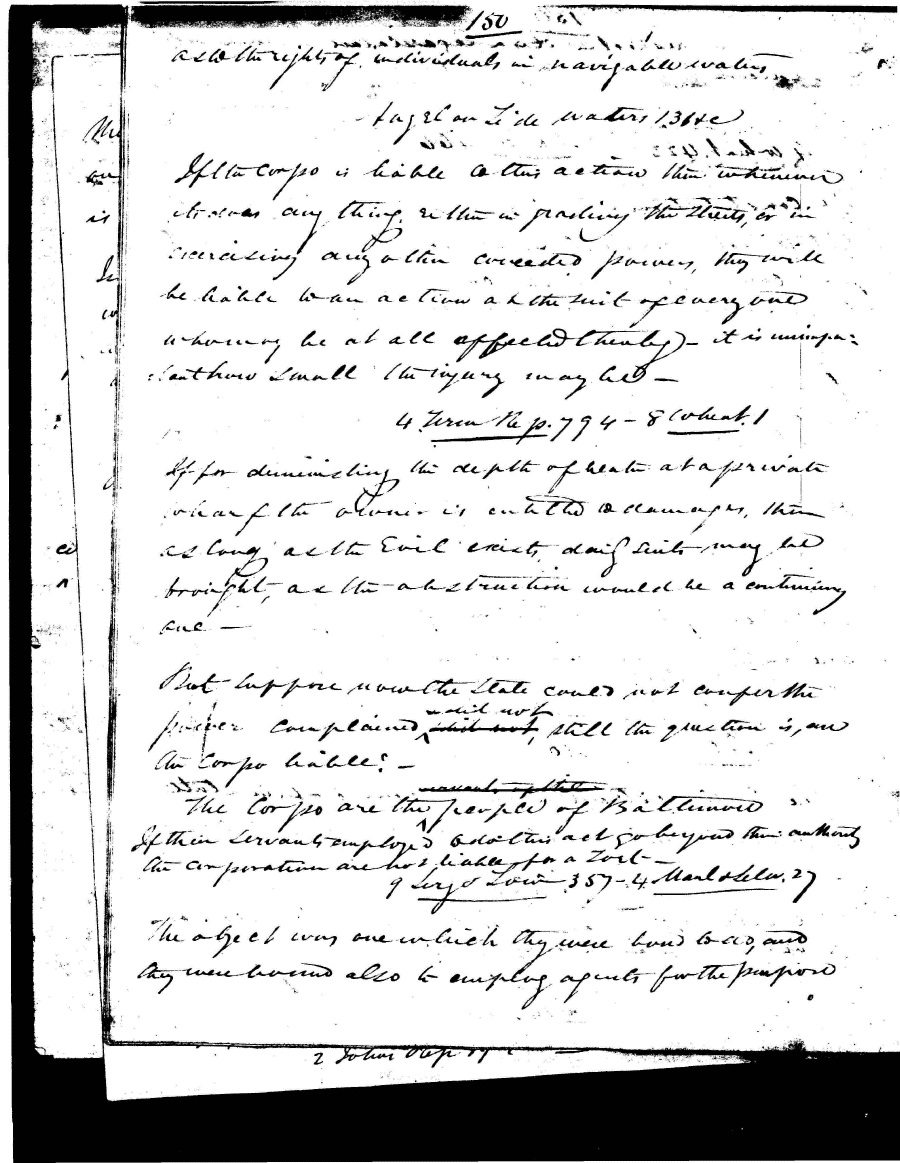 150
as to the rights of individuals in navigable waters
Angel on Tide Waters 136 &c
If the Corpo is liable to this action then whenever
it does any thing, either in grading the streets, or in
exercising any other conceded powers, they will
be liable to an action at the suit of every one
who may be at all affected thereby - it is unimpor=
:tant how small the injury may be -
4 Term Rep. 794 - 8 Wheat. 1
If for diminishing the depth of water at a private
wharf the owner is entitled to damages, then
as long as the Evil exists, daily suits may be
brought, as the obstruction would be a continuing
one -
But suppose now the State could not confer the
did not
power complained, did not, still the question is, are
the Corpo liable? -
servants of the
The Corpo are the people of Baltimore
If their servants employed to do this act go beyond their authority
the corporation are not liable for a Tort -
9 Serg & Low 357 - 4 Maul & Selw. 27
The object was one which they were bond to do, and
they were bound also to employ agents for the purpose
2 Johns Rep